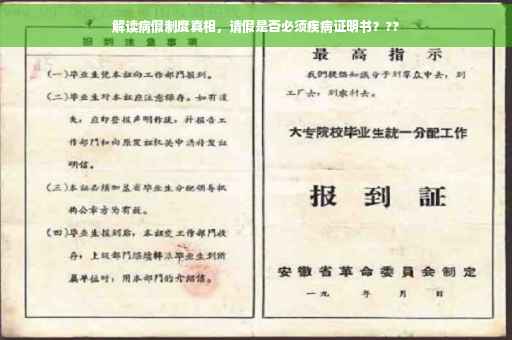 解读病假制度真相，请假是否必须疾病证明书？??
报到注意事项
(一)毕业生凭本证向工作部门报到。
(二)毕业生对本证应注意保存。如有遗
失，应即登报声明作废，并报告工
作部门和向原发证机关申请补发证
明信。
(三)本证必须加盖省毕业生分配领导机
构公章方为有效。
(四)毕业生报到后，本证交工作部门收
存；上级部门继续转派毕业生到所
属单位时，用本部门的介绍信。
最高指示
我们提倡知识分子到群众中去，到
工厂去，到农村去。
大专院校毕业生统一分配工作
报到证
安徽省革命委员会制定
一九 年 月 日